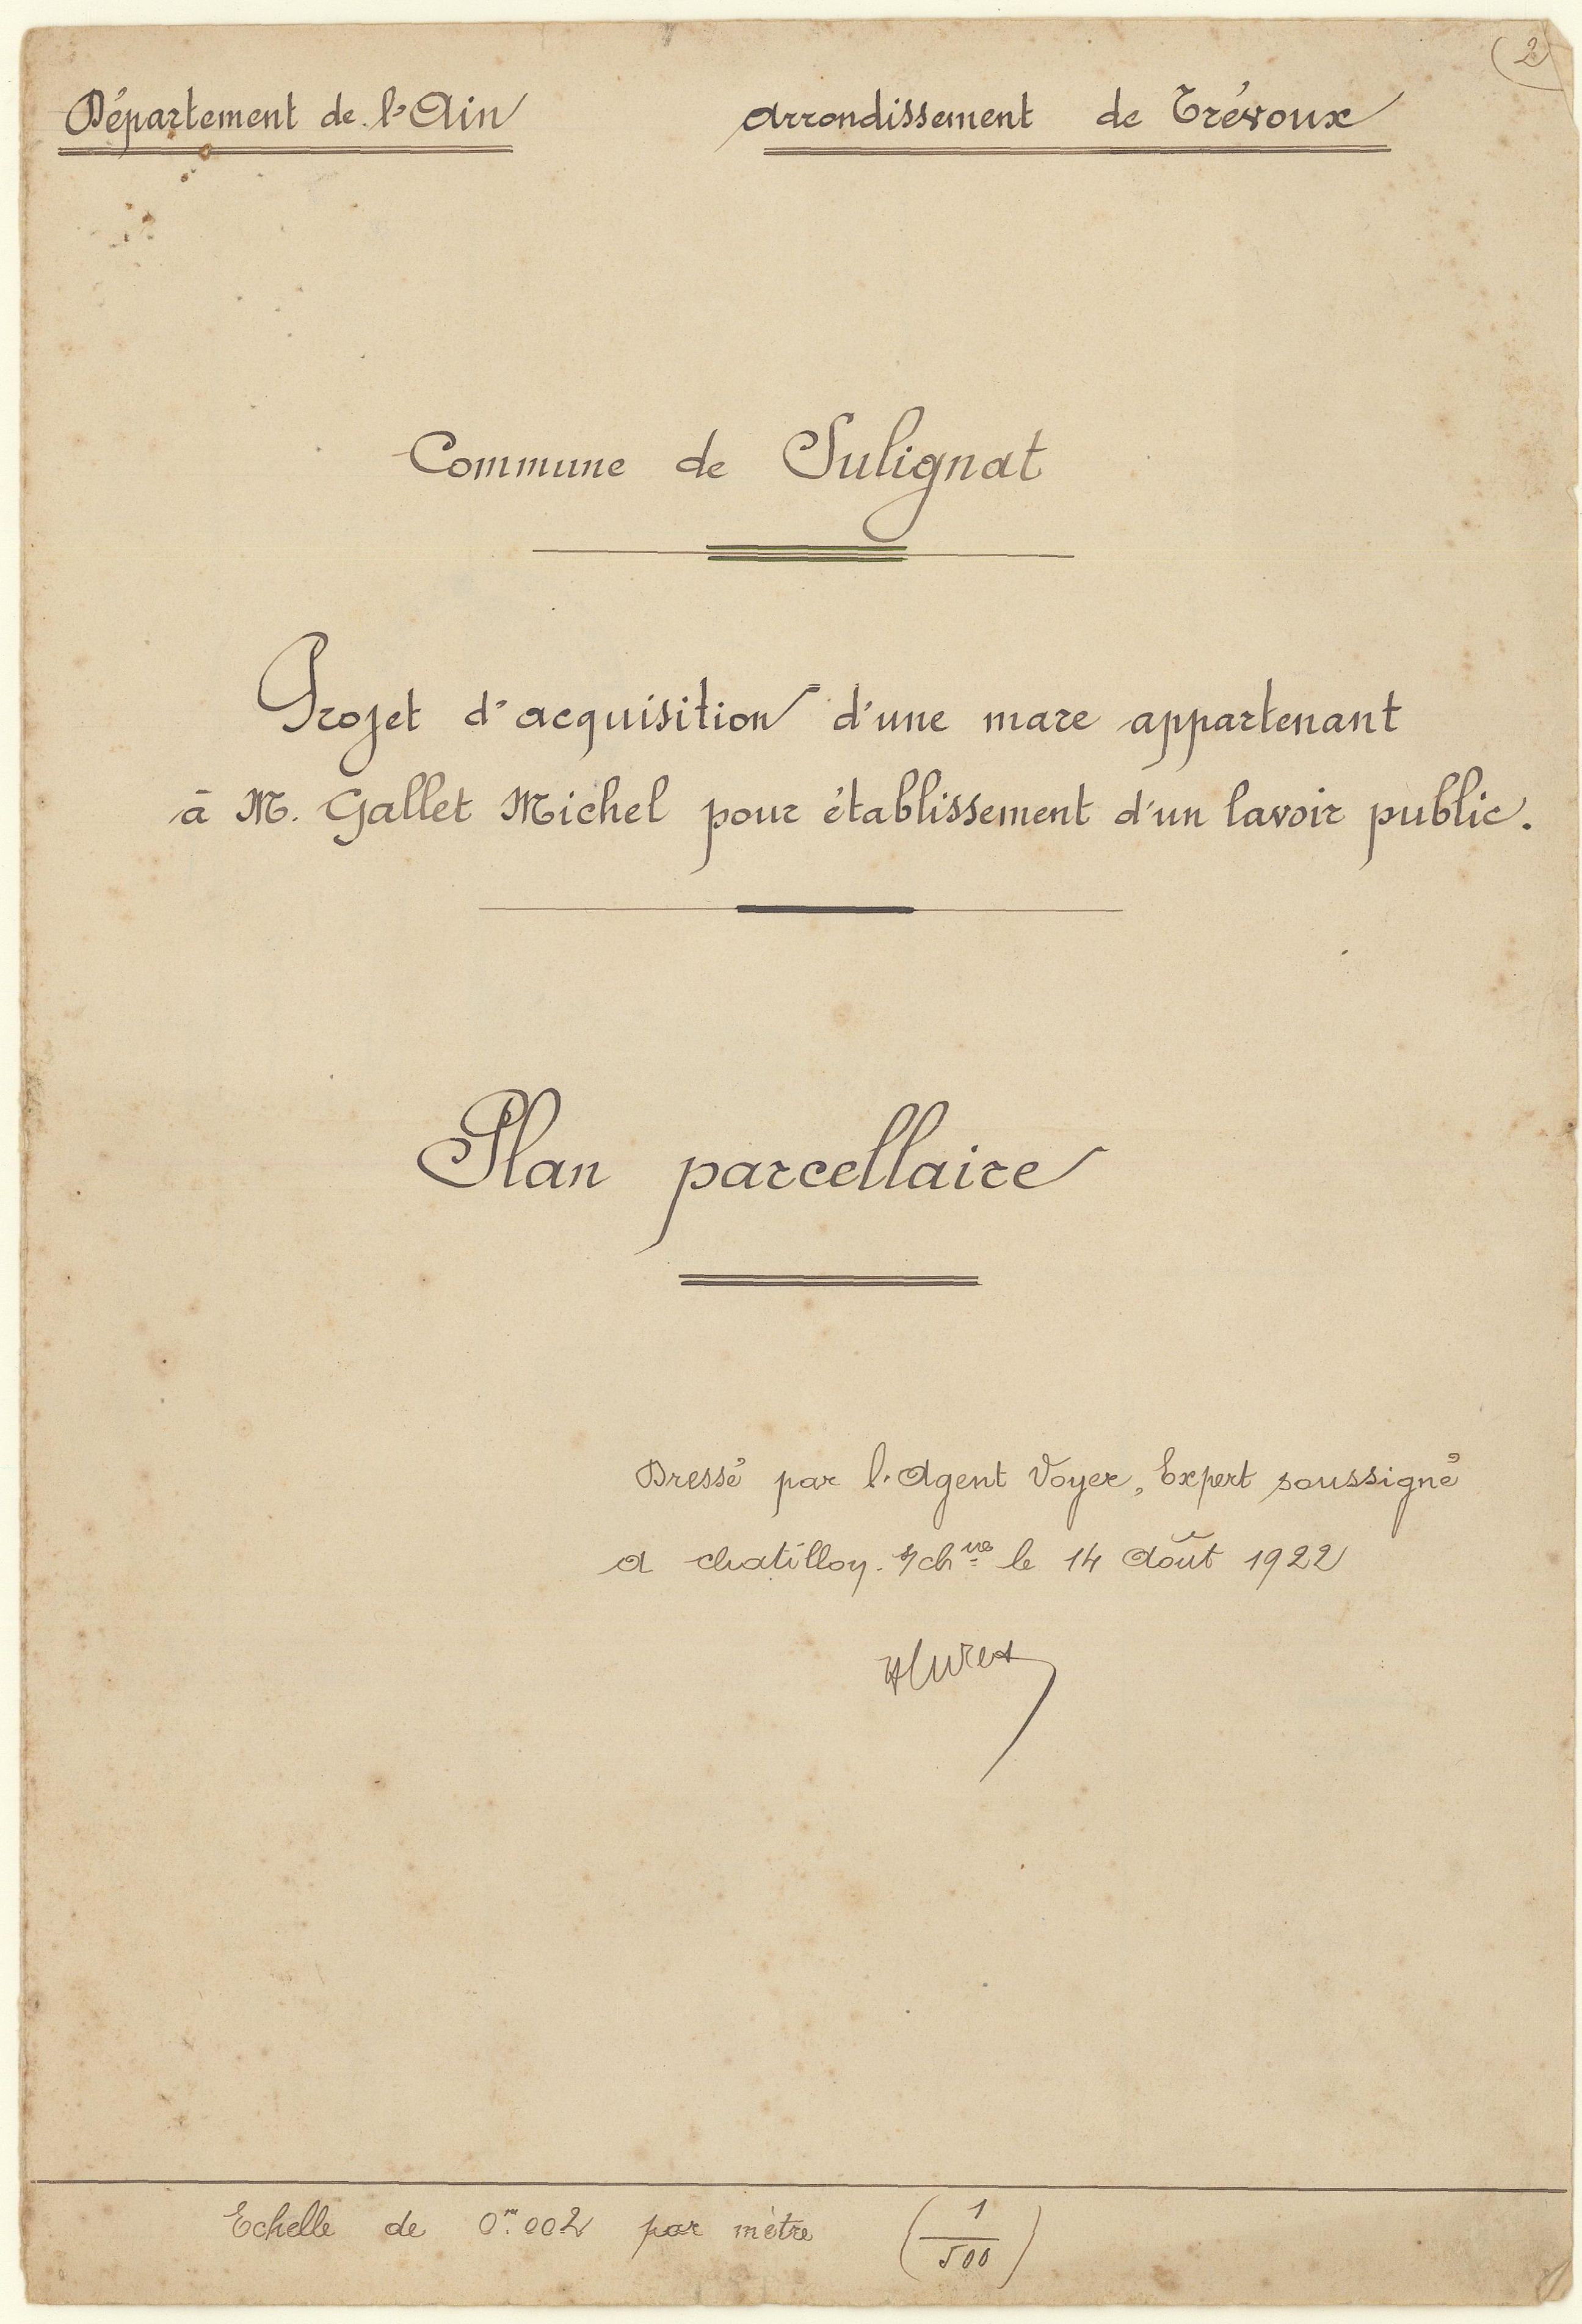 (2)
Département de l'Ain arrondissement de Trévoux
Commune de Sulignat
Projet d'acquisition d'une mare appartenant
à M. Gallet Michel pour établissement d'un lavoir public.
Plan parcellaire
Dressé par l'Agent Voyer, Expert soussigné
a chatillon s/chne le 14 Août 1922
Echelle de 0m.002 par mètre (1/500)